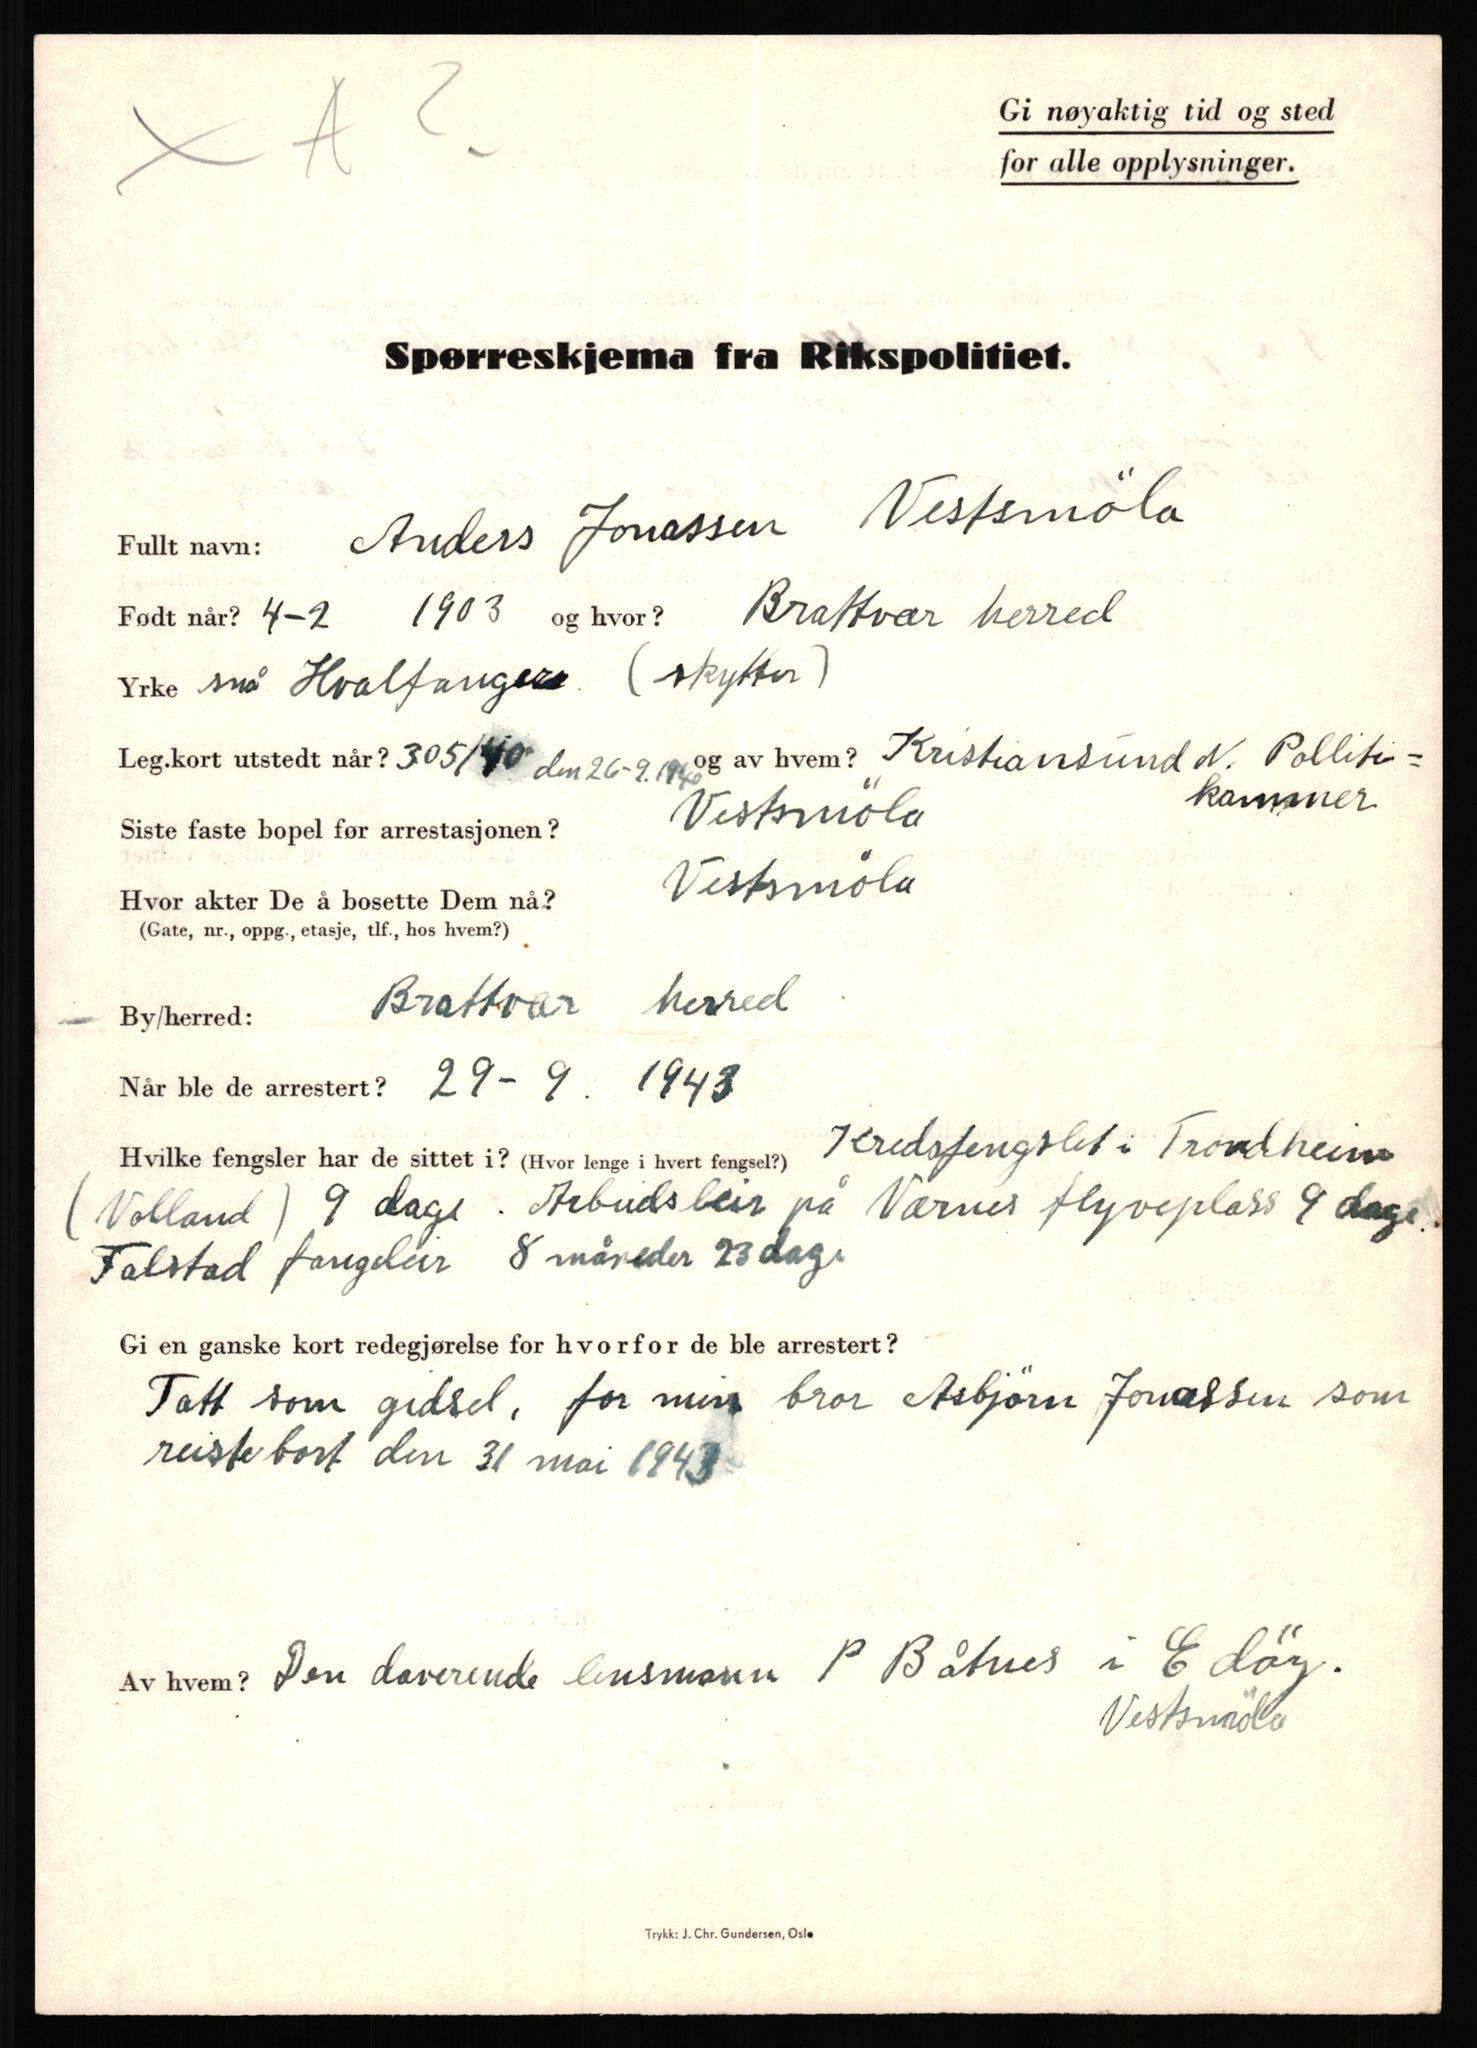 X A ?
Gi nøyaktig tid og sted
for alle opplysninger.
Spørreskjema fra Rikspolitiet.
Fullt navn: Anders Jonassen Vestsmöla
Født når? 4-2 1903 og hvor? Brattvær herred
Yrke små Hvalfangere (skytter)
Leg.kort utstedt når? 305/40 den 26-9.1940 og av hvem? Kristiansund N. Polliti=
kammer
Siste faste bopel før arrestasjonen? Vestsmöla
Hvor akter De å bosette Dem nå? Vestsmöla
(Gate, nr., oppg., etasje, tlf., hos hvem?)
By/herred: Brattvær herred
Når ble de arrestert? 29-9. 1943
Hvilke fengsler har de sittet i? (Hvor lenge i hvert fengsel?) Kredsfengslet i Trondheim
(Volland) 9 dage. Arbudsleir på Værnes flyveplass 9 dage.
Falstad fangeleir 8 måneder 23 dage
Gi en ganske kort redegjørelse for hvorfor de ble arrestert?
Tatt som gidsel, for min bror Asbjörn Jonassen som
reiste bort den 31 mai 1943
Av hvem? Den daverende lensmann P Båtnes i Edöy.
Vestsmöla
Trykk: J. Chr. Gundersen, Oslo